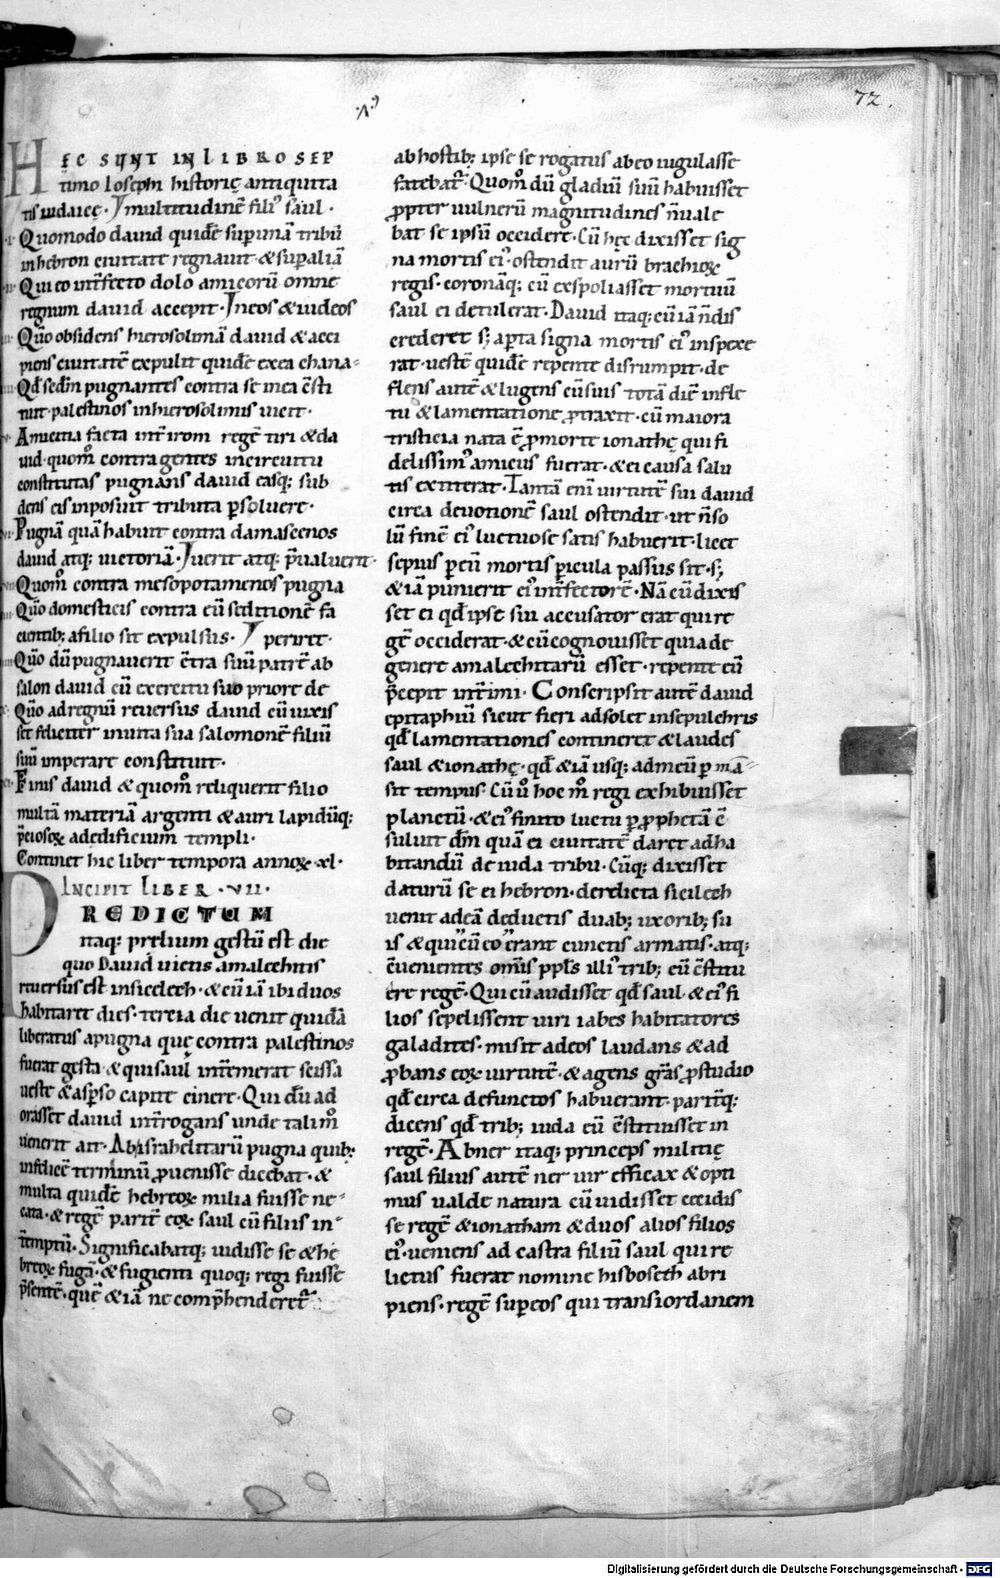 ·Λ·)
72.
HEC SUNT IN LIBRO SEP
timo Ioseph historię antiquita
tis iudaicę. Jmultitudinē filiꝰ saul.
Quomodo dauid quidē sup unā tribū
in hebron ciuitate regnauit. & sup aliā
Qui eo int̄fecto dolo amicorū omne
regnum dauid accepit. Jn eos & iudeos
Quō obsidens hierosolimā dauid & acci
piens ciuitatē expulit quidē ex ea chana-
Qd̄ sedm̄ pugnantes contra se in ea c̄sti
tut. palestinos in hierosolimis uicit.
Amicitia facta int̄ irom regē tiri & da
uid. quom̊ contra gentes in circuitu
constitutas pugnans dauid easq; sub
dens eis inposuit tributa p̱soluere.
Pugnā quā habuit contra damascenos
dauid atq; uictoriā. Juerit atq; p̄ualuerit.
Quom̊ contra mesopotamenos pugna
Quō domesticis contra eū seditionē fa
cientib; a filio sit expulsus. J periret.
Quō dū pugnauerit c̄tra suū patrē ab
salon dauid cū exercitu suo priore de
Quō ad regnū reuersus dauid cū uixis
set feliciter in uita sua salomonē filiū
suū imperare constituit.
Finis dauid & quom̊ reliquerit filio
multā materiā argenti & auri lapidūq;
p̄ciosoꝝ ad edificium templi.
Continet hic liber tempora annoꝝ xl.
INCIPIT LIBER .VII.
PREDICTUM
itaq; prelium gestū est die
quo Dauid uictis amalechitis
reuersus est in sicelech. & cū iā ibi duos
habitaret dies. tercia die uenit quidā
liberatus a pugna quę contra palestinos
fuerat gesta. & qui saul int̄emerat scissa
ueste & asp̱so capite cinere. Qui dū ad
orasset dauid int̄rogans unde talim̊
uenerit ait. Ab israhelitarū pugna quib;
infelicē terminū ꝓuenisse dicebat. &
multa quidē hebreoꝝ milia fuisse ne-
cata. & regē parit̄ eoꝝ saul cū filiis in-
t̄emptū. Significabatq; uidisse se & he
breoꝝ fugā. & fugienti quoq; regi fuisse
p̄sentē. quē & iā ne comp̄henderet᷑
ab hostib; ipse se rogatus ab eo iugulasse
fatebat᷑. Quom̊ dū gladiū suū habuisset
ꝓpter uulnerū magnitudines n̄ uale
bat se ipsū occidere. Cū hęc dixisset sig
na mortis eiꝰ. ostendit aurū brachioꝝ
regis. coronāq; cū exspoliasset mortuū
saul ei detulerat. Dauid itaq; cū iā n̄ dis
crederet s; ap̱ta signa mortis eiꝰ inspexe
rat. uestē quidē repente disrumpit. de
flens autē & lugens cū suis totā diē in fle
tu & lamentatione ꝓtraxit. cū maiora
tristicia nata ē ꝓ morte ionathę qui fi
delissimꝰ amicus fuerat. & ei causa salu
tis extiterat. Tantā enī uirtutē sui dauid
circa deuotionē saul ostendit. ut n̄ so
lū finē eiꝰ luctuose satis habuerit. licet
sepius p̱ eū mortis p̱icula passus sit. s;
& iā punierit eiꝰ int̄fectorē. Nā cū dixis
set ei qd̄ ipse sui accusator erat qui re
gē occiderat. & cū cognouisset quia de
genere amalechitarū esset. repente eū
p̄cepit int̄imi. Conscripsit autē dauid
epitaphiū sicut fieri adsolet in sepulchris
qd̄ lamentationes contineret & laudes
saul & ionathę. qd̄ & iā usq; ad meū p̱mā-
sit tempus. Cū ū hoc m̊ regi exhibuisset
planctū. & eiꝰ finito luctu p̱ ꝓphetā ē
suluit dm̄ quā ei ciuitatē daret ad ha
bitandū de iuda tribu. Cūq; dixisset
daturū se ei hebron. derelicta sicelech
uenit ad eā deductis duab; uxorib; su
is & qui cū eo erant cunctis armatis. atq;
c̄uenientes om̄is pp̄ls illiꝰ trib; eū c̄stitu
ere regē. Qui cū audisset qd̄ saul & eiꝰ fi
lios sepelissent uiri iabes habitatores
galadites. misit ad eos laudans & ad
ꝓbans eoꝝ uirtutē. & agens gr̄as ꝓ studio
qd̄ circa defunctos habuerant. parit̄q;
dicens qd̄ trib; iuda eū c̄stituisset in
regē. Abner itaq; princeps militię
saul filius autē ner uir efficax & opti
mus ualde natura cū uidisset cecidis
se regē & ionatham & duos alios filios
eiꝰ. ueniens ad castra filiū saul qui re
lictus fuerat nomine hisboseth abri
piens. regē sup eos qui trans iordanem
Digitalisierung gefördert durch die Deutsche Forschungsgemeinschaft - DFG